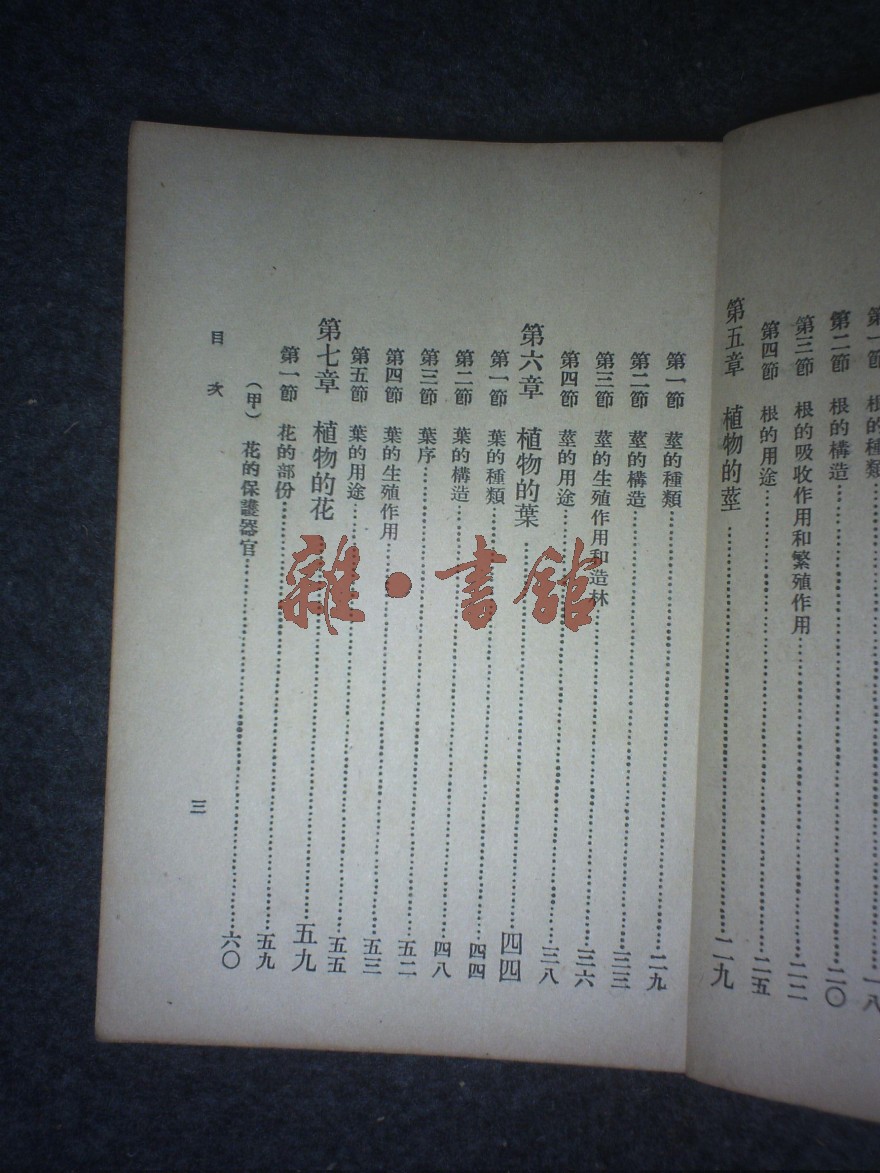 第一節　根的種類……一八
第二節　根的構造……二〇
第三節　根的吸收作用和繁殖作用……二二
第四節　根的用途……二五
第五章　植物的莖……二九
第一節　莖的種類……二九
第二節　莖的構造……三三
第三節　莖的生殖作用和造林……三六
第四節　莖的用途……三八
第六章　植物的葉……四四
第一節　葉的種類……四四
第二節　葉的構造……四四
第三節　葉序……四八
第四節　葉的生殖作用……五二
第五節　葉的用途……五三
第七章　植物的花……五九
第一節　花的部份……五九
（甲）花的保護器官……六〇
目次
三
雜·書館